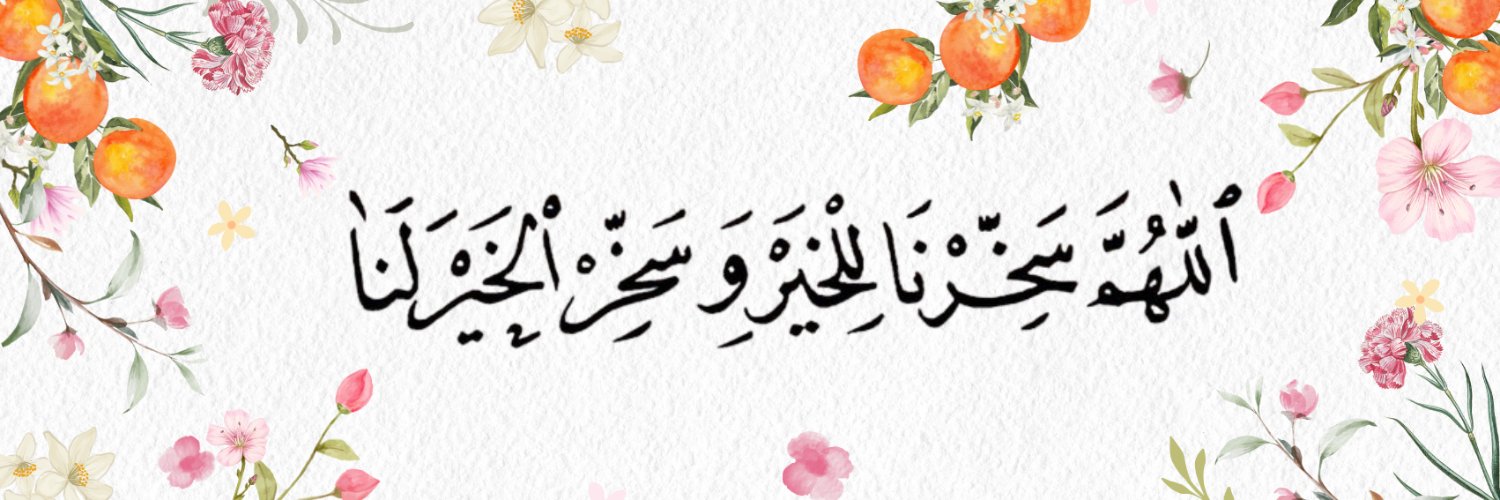 اَللّٰهُمَّ سَخِّرْنَا لِلْخَيْرِ وَ سَخِّرْ الْخَيْرَ لَنَا